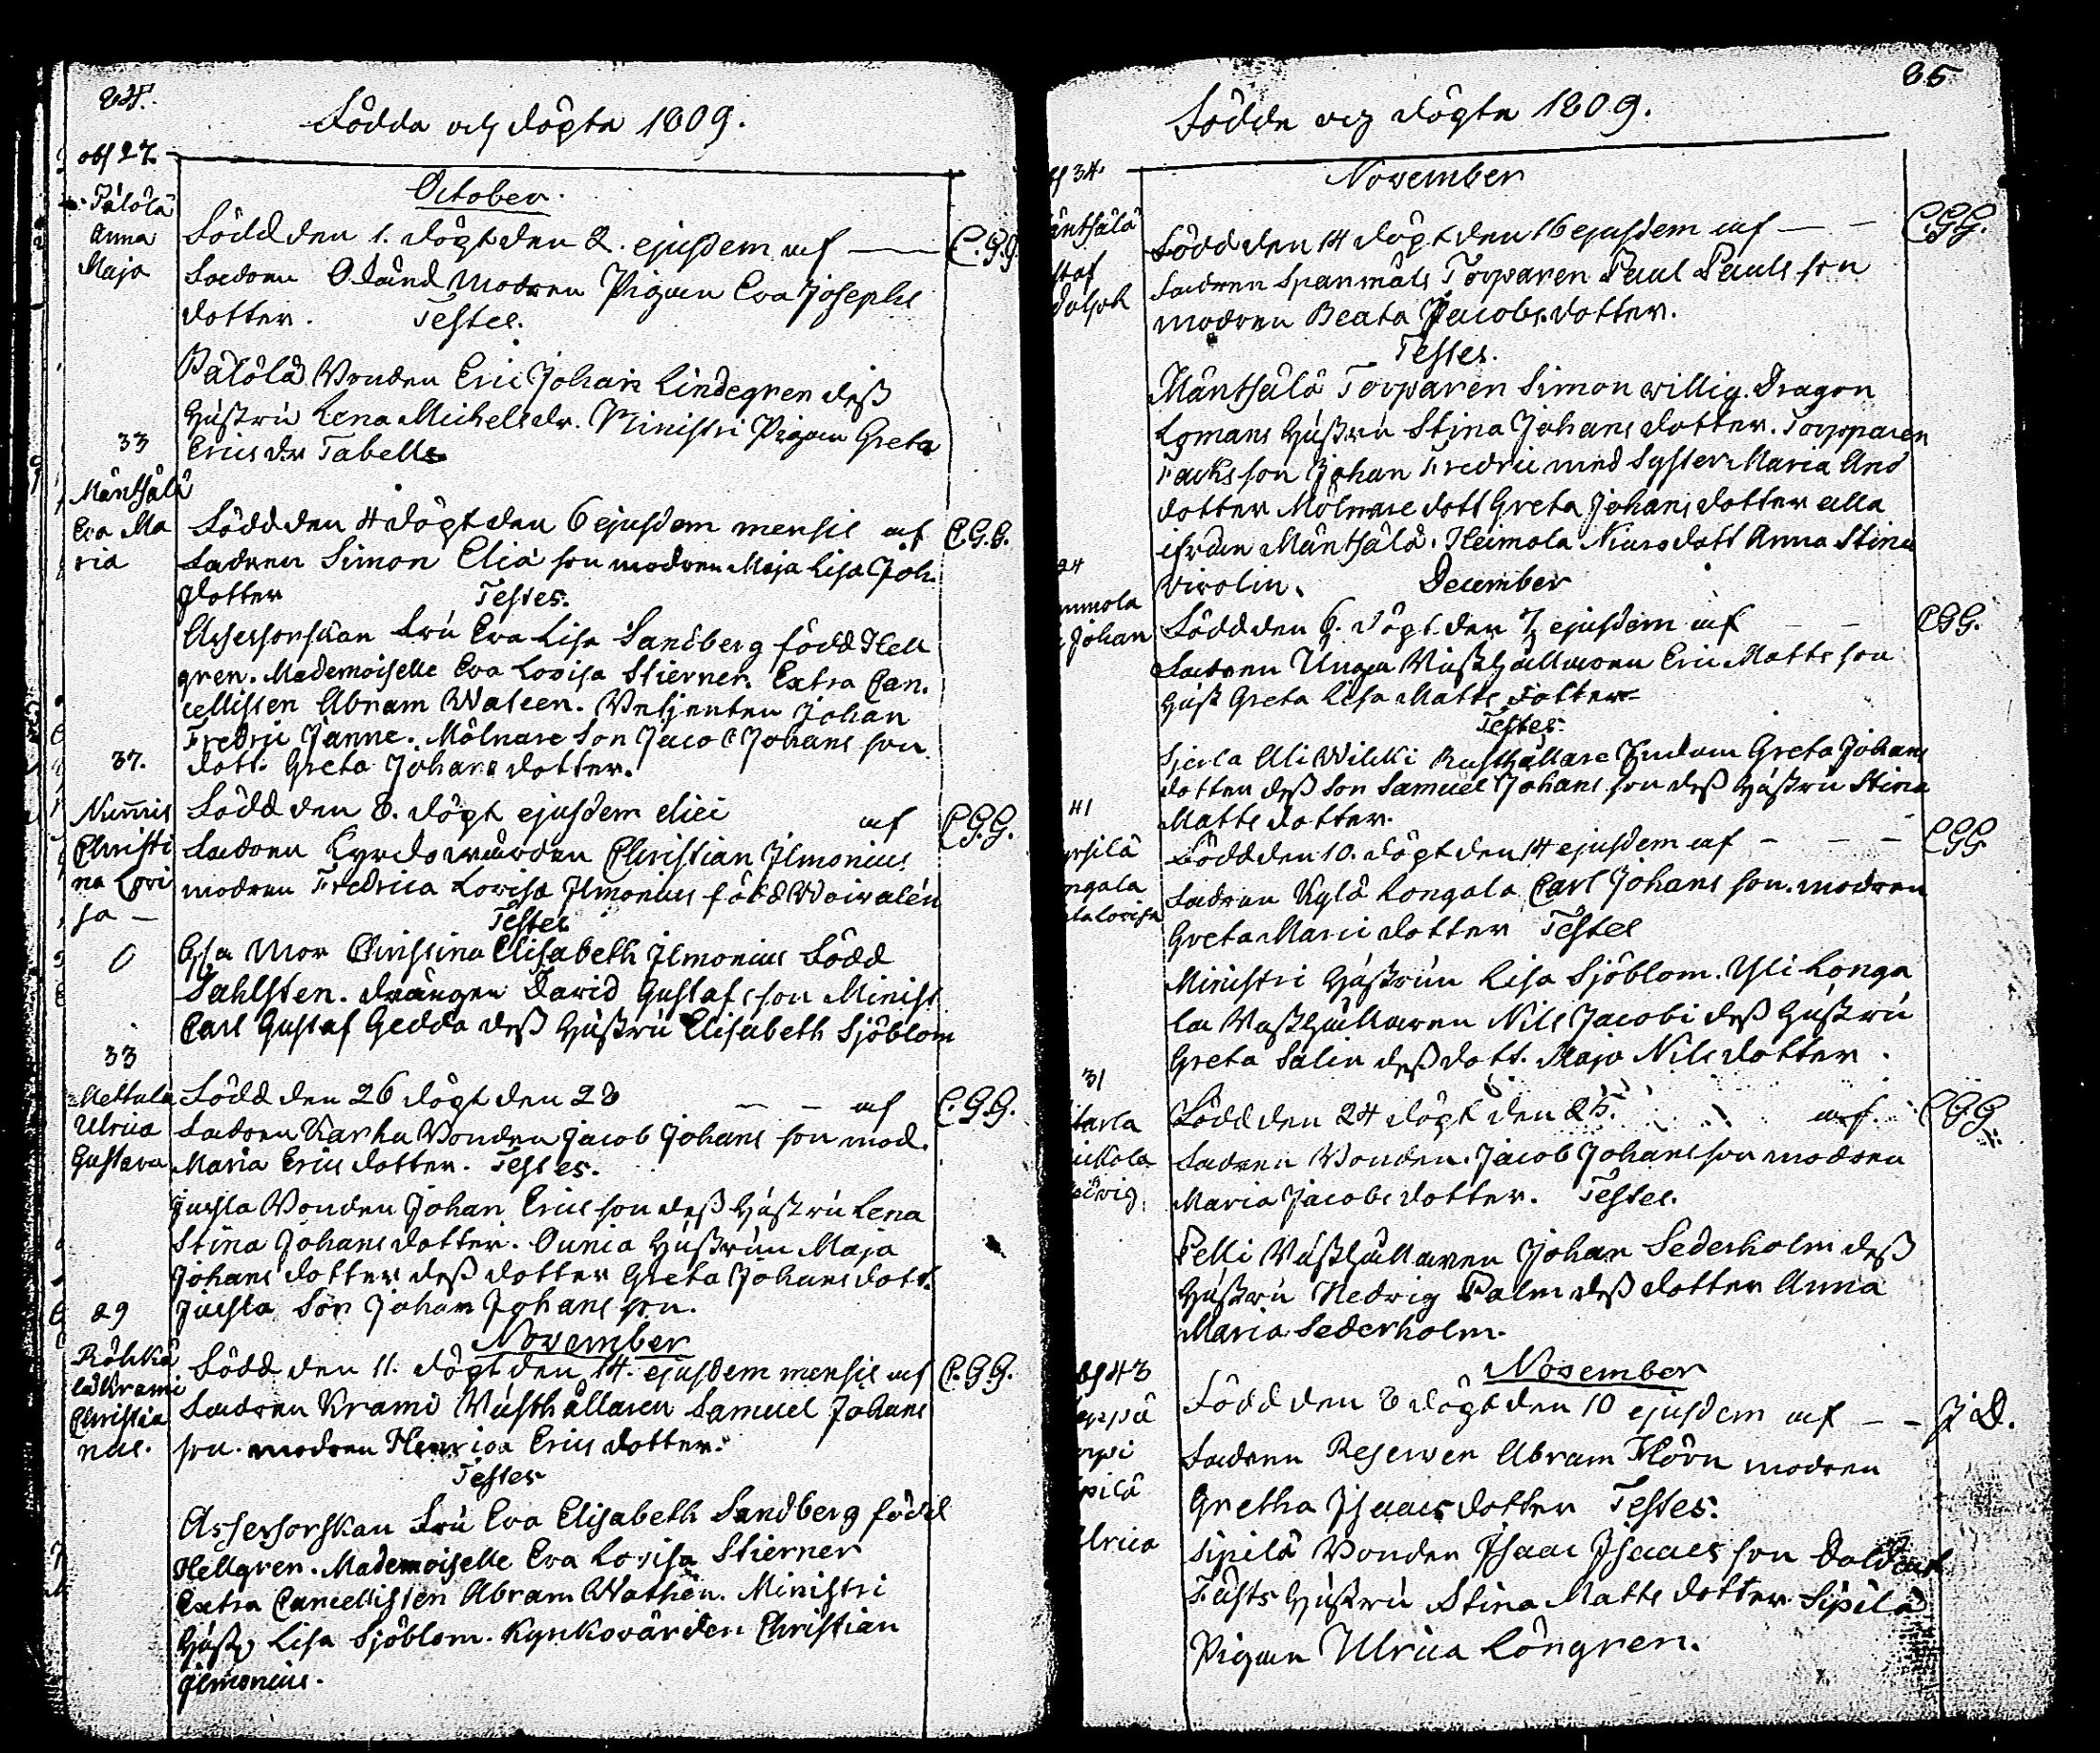 84.
Födda och döpta 1809.
obs 27.
October.
Pälölä
Anna
Maja
Född den 1. döpt den 2. ejusdem af — C.G.G.
Fadren Okänd Modren Pigan Eva Josephs
dotter. Testes.
Pälölä Bonden Eric Johan Lindegren dess
Hustru Lena Michelsdr. Ministri Pigan Greta
Ericsdr Tabelle
33
Mäntsälä
Eva Ma
ria
Född den 4 döpt den 6 ejusdem mensis af C.G.G.
Fadren Simon Elia son modren Maja Lisa Joh.
dotter Testes.
Assessorskan Fru Eva Lisa Sandberg född Hell
gren. Mademoiselle Eva Lovisa Stierner. Extra Can.
cellisten Abram Wateen. Betjenten Johan
Fredric Janne. Mölnare Son Jacob Johans son
dott. Greta Johans dotter.
37.
Nummis
Christi
na Lovi
sa —
Född den 8. döpt ejusdem diei af C.G.G.
Fadren Kyrckovärden Christian Ilmonius
modren Fredrica Lovisa Ilmonius född Woivalén
Testes
Mor Christina Elisabeth Ilmonius Född
Sahlsten. drängen David Gustafs son Minist
Carl Gustaf Gedda dess Hustru Elisabeth Sjöblom
33
Mettula
Ulrica
Gustava
Född den 26 döpt den 28 — — af C.G.G.
Fadren Karhu Bonden Jacob Johans son mod.
Maria Erics dotter. Testes.
Jussla Bonden Johan Erics son dess Hustru Lena
Stina Johans dotter. Ounia Hustrun Maja
Johans dotter dess dotter Greta Johans dott.
Jussla Son Johan Johans son.
November
29
Röhkä
lä Krami
Christia
nus.
Född den 11. döpt den 14. ejusdem mensis af C.G.G.
Fadren Krami Rusthållaren Samuel Johans
son. modren Henrica Erics dotter.
Testes
Assessorskan Fru Eva Elisabeth Sandberg född
Hellgren. Mademoiselle Eva Lovisa Stierner
Extra Cancellisten Abram Wathén. Ministri
Hust. Lisa Sjöblom. Kyrkovärden Christian
Ilmonius.
85
Födde och döpte 1809.
34.
November
äntsälä
staf
dolph
Född den 14 döpt den 16 ejusdem af — — C.G.G.
Fadren Spanmåls Torparen Paul Pauls son
modren Beata Jacobs dotter.
Testes.
Mäntsälä Torparen Simon willig. Dragon
Lomans Hustru Stina Johans dotter. Torpparen
son Johan Fredric med Syster Maria And
dotter Mölnare dott Greta Johans dotter alla
ifrån Mäntsälä. Heimola dott Anna Stina
Virolin.
December
24
mmola
Johan
Född den 6. döpt den 7 ejusdem af — — C.G.G.
Fadren Unga Rusthållaren Eric Matts son
Hust Greta Lisa Matts dotter
Testes.
Ali Wilcki Rusthållare Enckan Greta Johans
dotter dess Son Samuel Johans son dess Hustru Stina
Matts dotter.
41
yrsilä
ngala
ta Lovisa
Född den 10. döpt den 14 ejusdem af — — — C.G.G.
Fadren Kylä Longala Carl Johans son. modren
Greta Mari dotter Testes
Ministri Hustrun Lisa Sjöblom. Yli Longa
la Rusthållaren Nils Jacobi dess Hustru
Greta Salin dess dott. Maja Nils dotter.
31
tarla
uckola
Hedvig
Född den 24 döpt den 25. af. C.G.G.
Fadren Bonden. Jacob Johans son modren
Maria Jacobs dotter. Testes.
Pelli Rusthållaren Johan Sederholm dess
Hustru Hedvig Palm dess dotter Anna
Maria Sederholm.
November
obs 43
eppä
rpi
pilä
Ulrica
Född den 8 döpt den 10 ejusdem af — — J.D.
Fadren Reserven Abram Hörn modren
Gretha Isaacs dotter Testes.
Sipilä Bonden Isaac Isaacs son Soldat
Fästs Hustru Stina Matts dotter Sipilä
Pigan Ulrica Löngren.